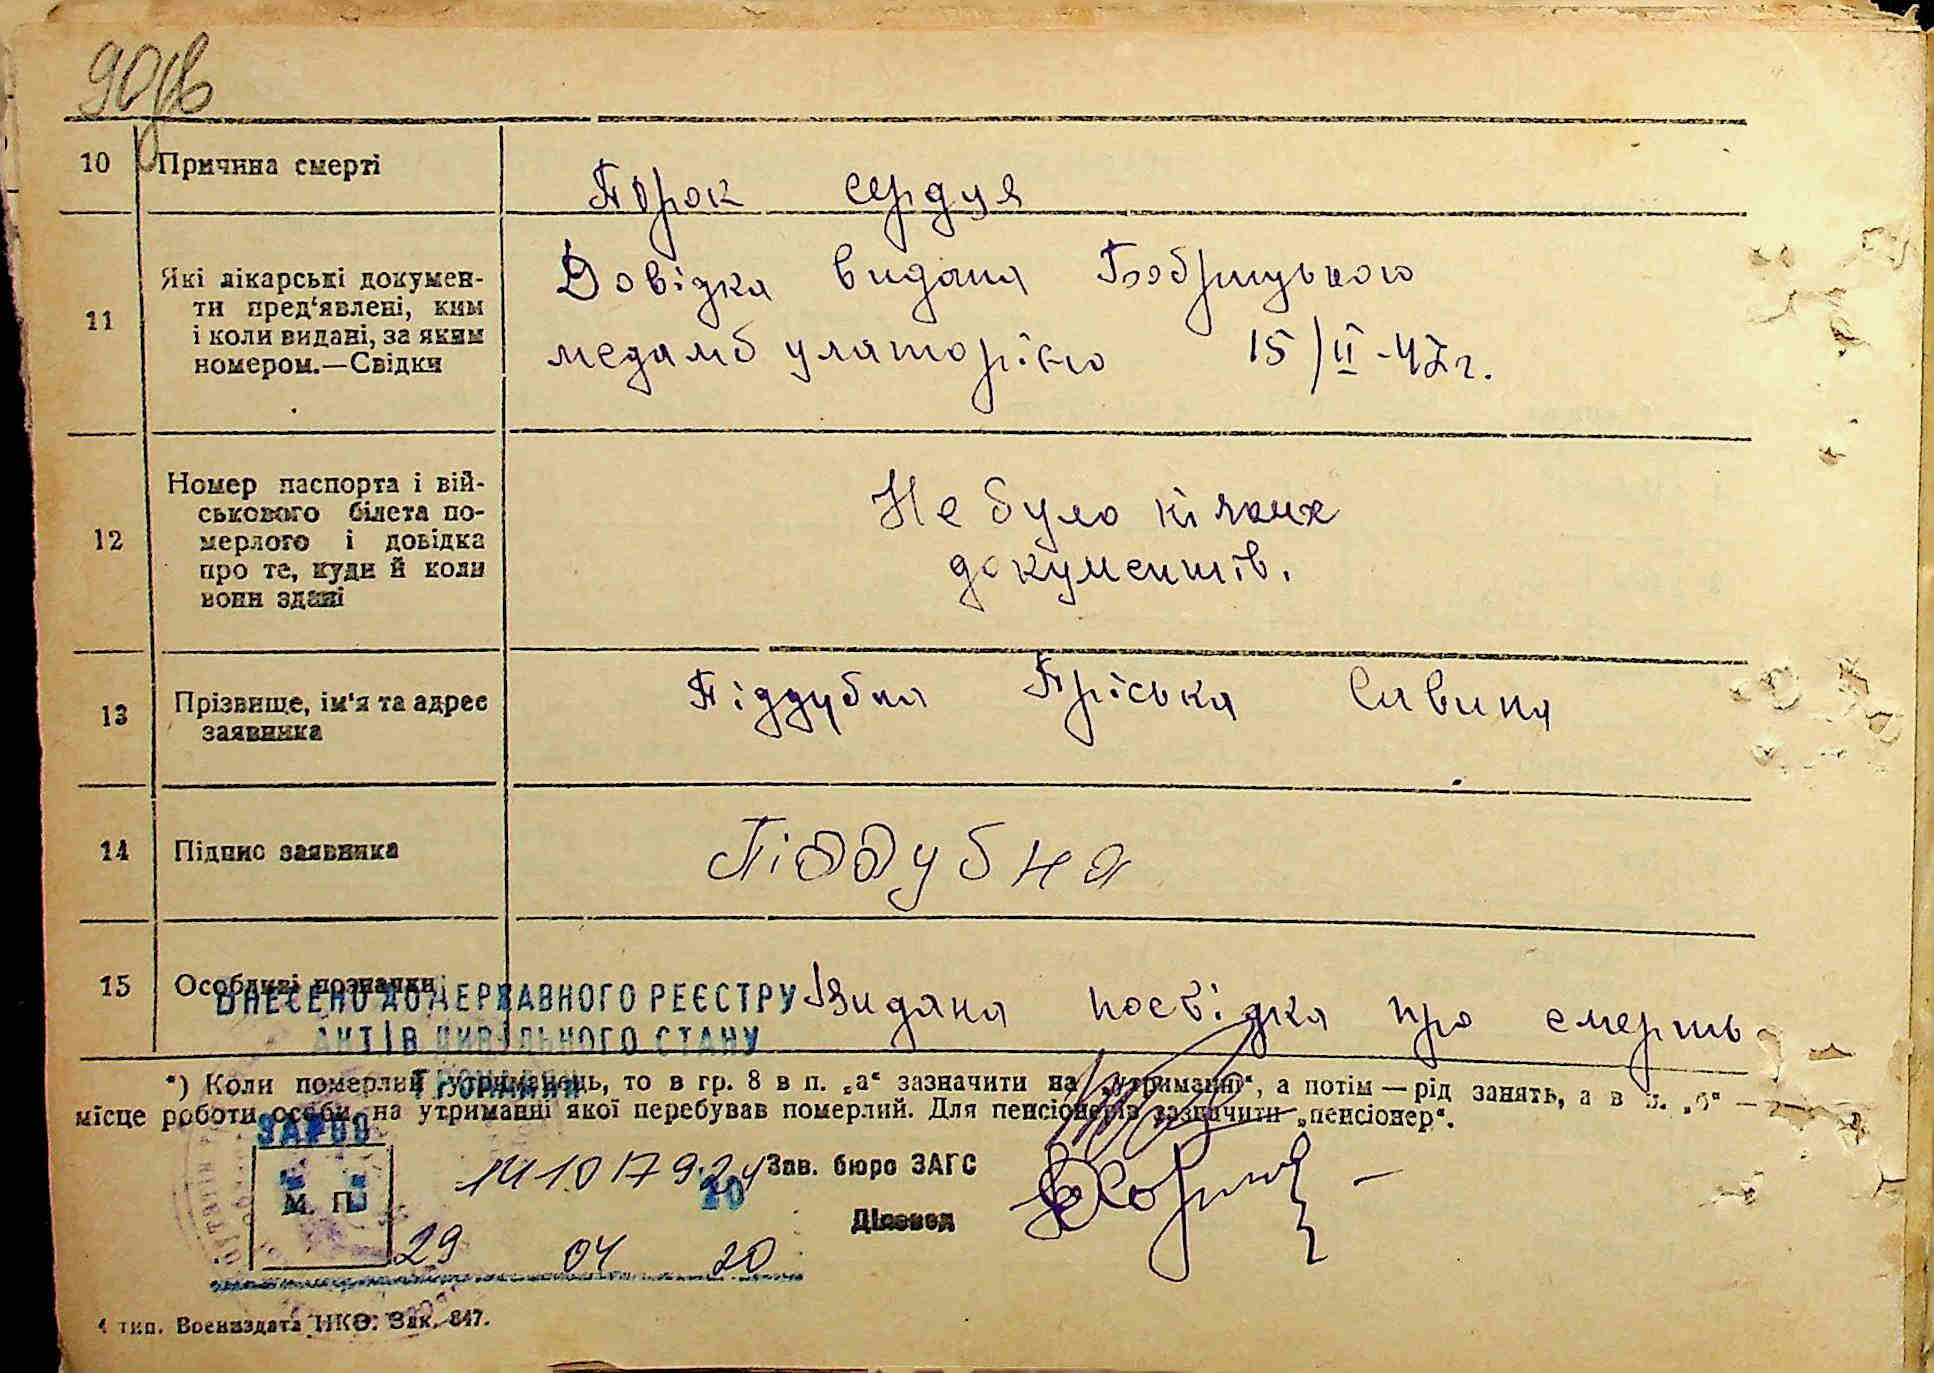 90зв
10 Причина смерті Порок сердця
11 Які лікарські докумен-
ти пред‘явлені, ким
і коли видані, за яким
номером.—Свідки
Довідка видана Бобрицькою
медамбуляторією 15/II-47г.
12 Номер паспорта і вій-
ськового білета по-
мерлого і довідка
про те, куди й коли
вони здані
Не було ніяких
документів.
13 Прізвище, ім‘я та адрес
заявника
Піддубна Пріська Савина
14 Підпис заявника Піддубна
15 Особливі позначки Видана посвідка про смерть
ВНЕСЕНО ДО ДЕРЖАВНОГО РЕЄСТРУ
АКТІВ ЦИВІЛЬНОГО СТАНУ
ГРОМАДЯН
*) Коли померлий утриманець, то в гр. 8 в п. „а“ зазначити на „утриманні“, а потім — рід занять, а в п. „б“ —
місце роботи особи, на утриманні якої перебував померлий. Для пенсіонерів зазначити „пенсіонер“.
М. П.
Зав. бюро ЗАГС
Діловод
29 04 20
4 тип. Воениздата НКО. Зак. 847.